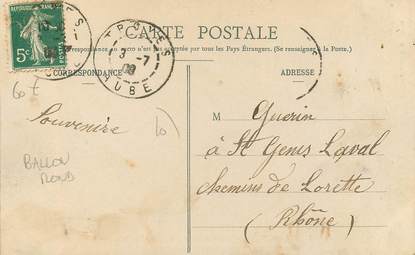 CARTE POSTALE
La Correspondance au recto n'est pas acceptée par tous les Pays Étrangers. (Se renseigner à la Poste.)
CORRESPONDANCE
ADRESSE
5c
TROYES
3 -7
09
AUBE
60 f
10
Souvenire
BALLON
ROND
M Guerin
à St Genis Laval
chemins de Lorette
(Rhône)